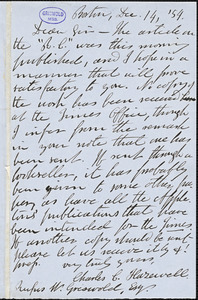 Boston, Dec. 14, '54.
Dear Sir — The article on
the "R. C." was this morning
published, and I hope in a
manner that will prove
satisfactory to you. No copy of
the work has been received
at the Times Office, though
I infer from the remark
in your note that one has
been sent. If sent through a
bookseller, it has probably
been given to some other pa-
pers, as have all the Apple-
tons' publications that have
been intended for the Times.
If another copy should be sent,
please let us receive it
Very truly yours,
Charles C. Hazewell.
Rufus W. Griswold, Esq.